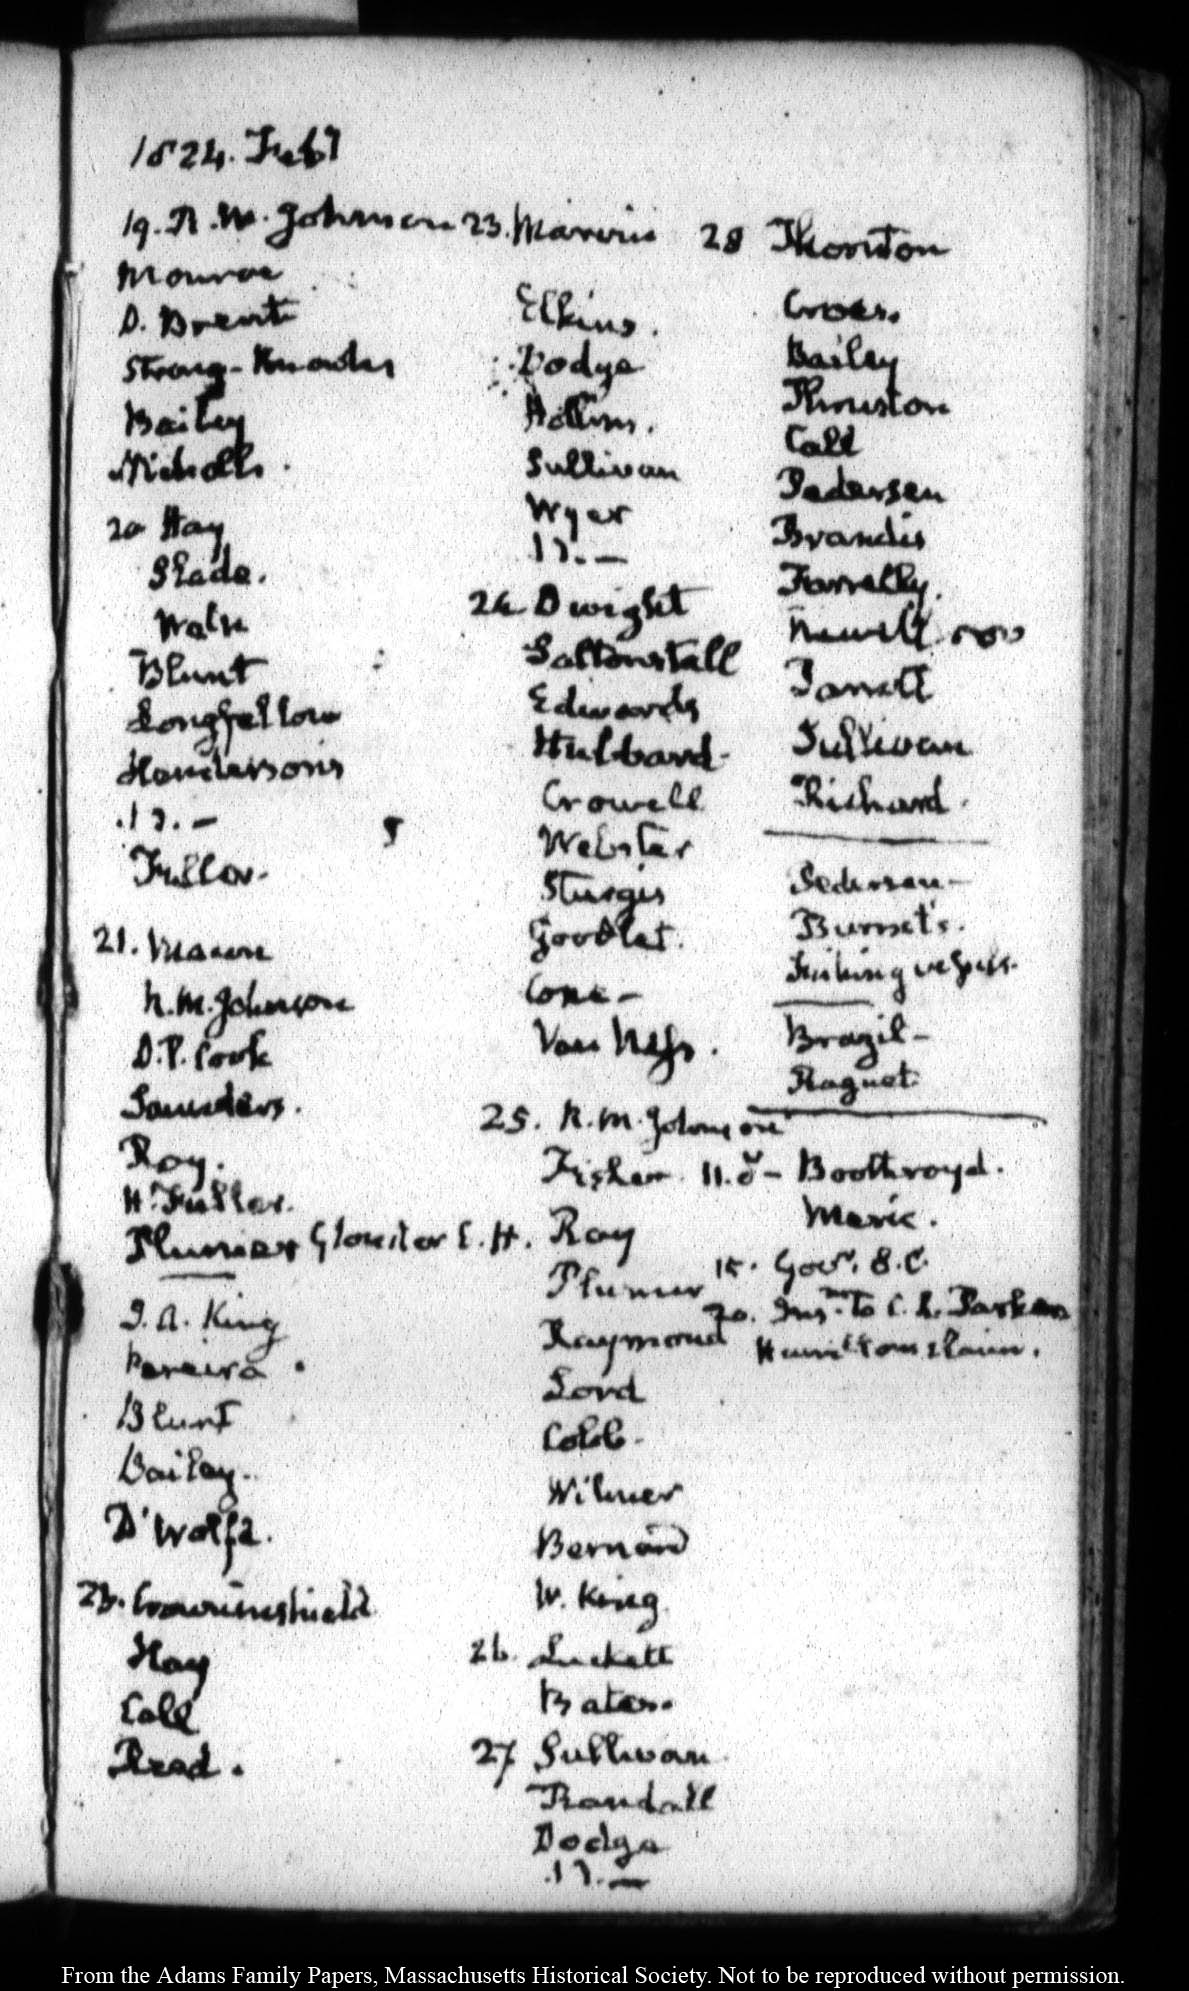 1824. Feby
19. R. M. Johnson
Monroe
D. Brent
Strong-
Bailey
Nicholls.
20 Hay
Slade.
Blunt
Longfellow
Hendersons
.17.-
Fuller.
21. Mason
R. M. Johnson
D. P. Cook
Saunders.
Roy.
H. Fuller.
Plumer E. H.
I. A. King
Pereira.
Blunt
Bailey.
D'Wolfe.
23. Crowninshield
Hay
Call
Read.
23.
Elkins.
Dodge
Hollins.
Sullivan
Wyer
.17.-
24 Dwight
Saltonstall
Edwards
Hubbard-
Crowell
Webster
Sturgis
Goodlet.
Cone-
Van Ness.
25. R. M. Johnson
Fisher
Ray
Plumer
Raymond
Lord
Cobb.
Wilmer
Bernard
W. King
26. Luckett
Bates.
27 Sullivan
Randall
Dodge
.17.-
28 Thornton
Cross.
Bailey
Thruston
Call
Pedersen
Brandis
Farrelly.
Newell
Jarrett
Sullivan
Richard.
Pedersen-
Burnet's.
Fishing vessels.
Brazil-
Raguet
11. Boothroyd.
15. Govr. S. C.
20. Insns. to Parker
Hamilton
From the Adams Family Papers, Massachusetts Historical Society. Not to be reproduced without permission.